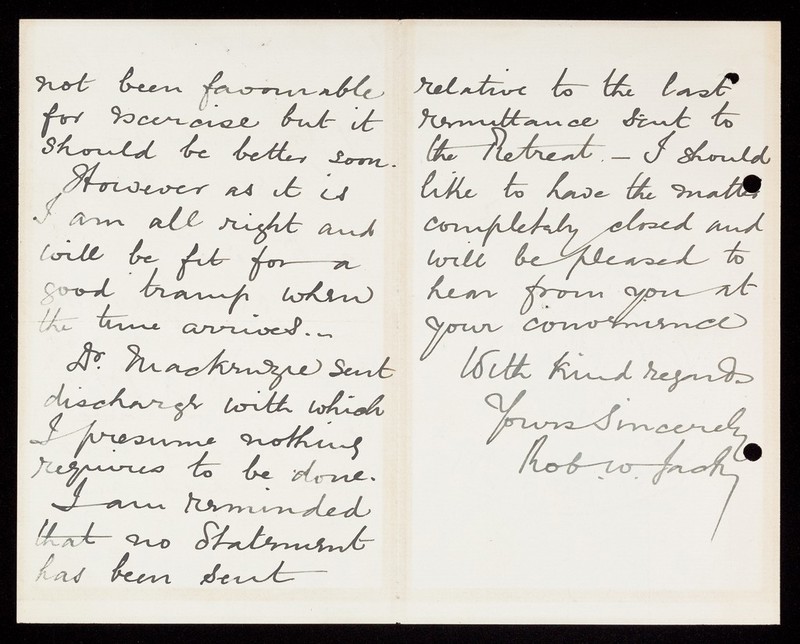 not been favourable
for excercise but it
should be better soon.
However as it is
I am all right and
will be fit for a
good tramp when
the time arrives.
Dr. Mackenzie sent
discharge with which
I presume nothing
requires to be done.
I am reminded
that no Statement
has been sent
relative to the last
remittance sent to
the Retreat. — I should
like to have the matter
completely closed and
will be pleased to
hear from you at
your convenience
With kind regards
Yours Sincerely
Rob. W. Jack